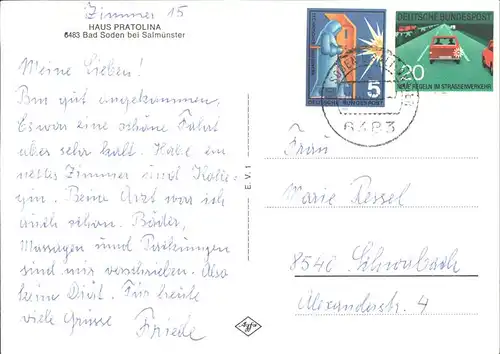 Zimmer 15
HAUS PRATOLINA
6483 Bad Soden bei Salmünster
Meine Lieben!
Bin gut angekommen.
Es war eine schöne Fahrt
aber sehr kalt. Habe ein
nettes Zimmer und Kolle-
gin. Beim Arzt war ich
auch schon. Bäder,
Massagen und Packungen
sind mir vorschrieben. Also
keine Diät. Für heute
viele Grüsse
Friede
E.V.1
Agfa
5
DEUTSCHE BUNDESPOST
DEUTSCHE BUNDESPOST
20
NEUE REGELN IM STRASSENVERKEHR
6483
Frau
Marie Ressel
8540 Schwabach
Alexanderstr. 4